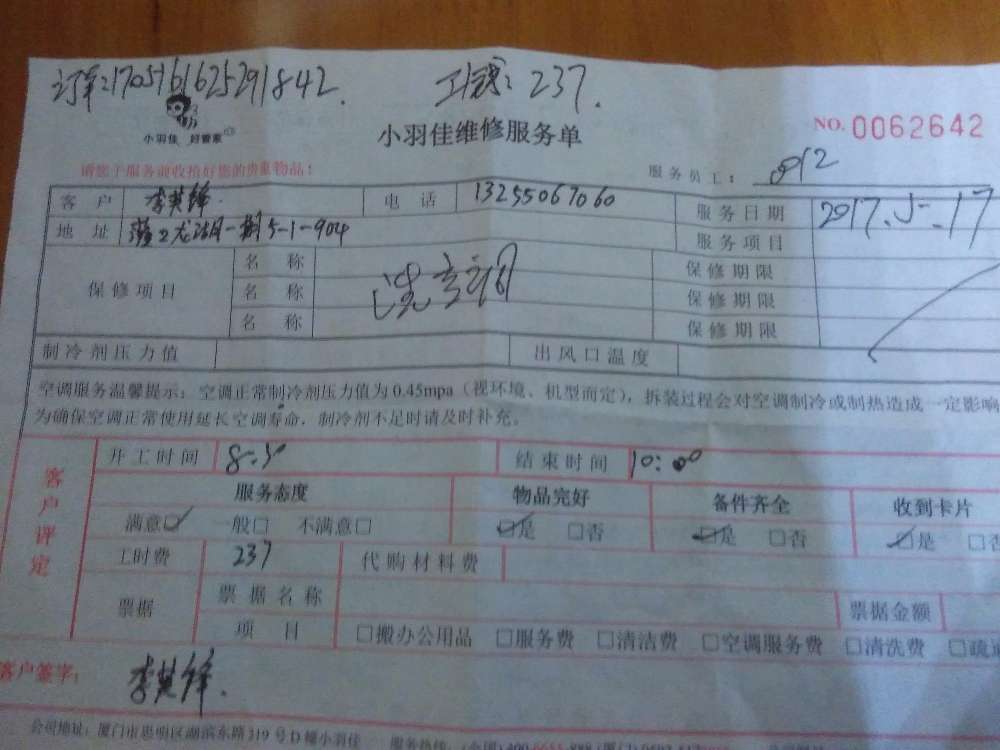 订单:170516162529 1842. 工钱:237.
小羽佳 好管家
小羽佳维修服务单
NO. 0062642
请您于服务前收拾好您的贵重物品!
服务员工: 912
客户 李英锋 电话 13255067060 服务日期 2017.5.17
地址 龙湖一期5-1-904 服务项目
保修项目 名称 保修期限
名称 洗空调 保修期限
名称 保修期限
制冷剂压力值 出风口温度
空调服务温馨提示:空调正常制冷剂压力值为0.45mpa(视环境、机型而定),拆装过程会对空调制冷或制热造成一定影响
为确保空调正常使用延长空调寿命,制冷剂不足时请及时补充。
客户评定
开工时间 8:30 结束时间 10:00
服务态度 物品完好 备件齐全 收到卡片
满意☑ 一般□ 不满意□ ☑是 □否 ☑是 □否 ☑是 □否
工时费 237 代购材料费
票据 票据名称 票据金额
项目 □搬办公用品 □服务费 □清洁费 □空调服务费 □清洗费 □疏通
客户签字: 李英锋.
公司地址:厦门市思明区湖滨东路319号D幢小羽佳 服务热线: